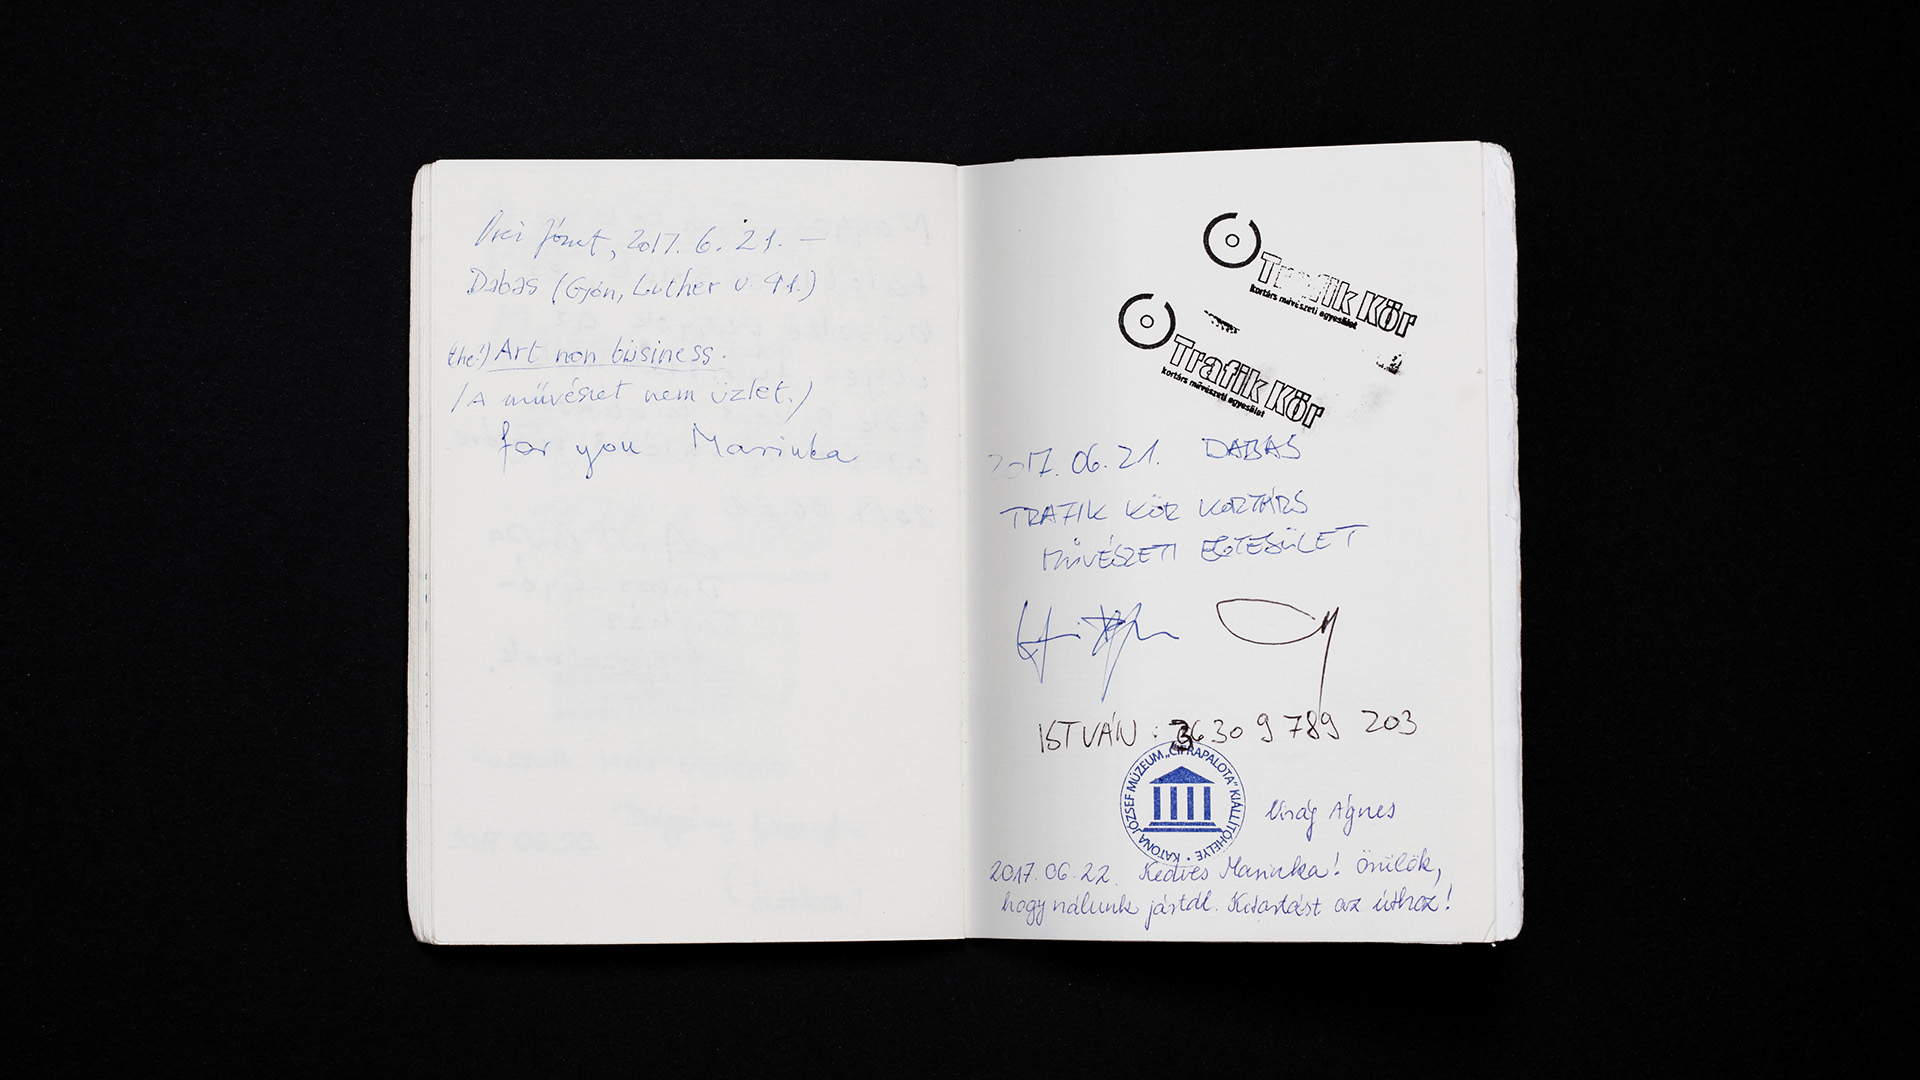 József, 2017. 6. 21. –
Dabas (Gyón, Luther u. 41.)
(the!) Art non business.
/A művészet nem üzlet./
for you Marinka
Trafik Kör
kortárs művészeti egyesület
Trafik Kör
kortárs művészeti egyesület
2017. 06. 21. DABAS
TRAFIK KÖR KORTÁRS
MŰVÉSZETI EGYESÜLET
ISTVÁN : 3630 9 789 203
KATONA JÓZSEF MÚZEUM „CIFRAPALOTA" KIÁLLÍTÓHELYE •
Virág Ágnes
2017. 06. 22. Kedves Marinka! Örülök,
hogy nálunk jártál. Kitartást az úthoz!